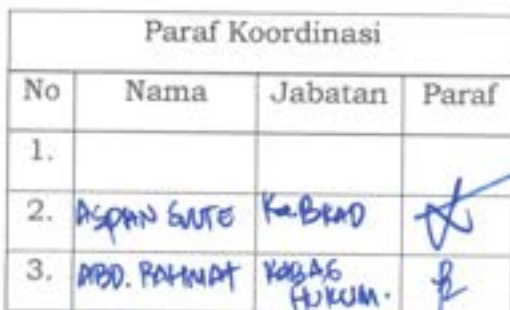 Paraf Koordinasi
No Nama Jabatan Paraf
1.
2. ASPAN Ka.BKAD
3. ABD. RAHMAT KABAG
HUKUM.